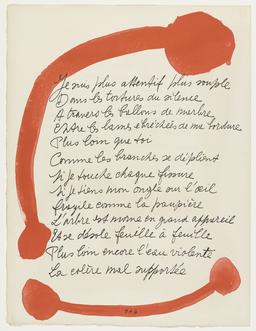 Je suis plus attentif plus souple
Dans les tortures du silence
A travers les ballons de marbre
Entre les lames ébréchées de ma
Plus loin que toi
Comme les branches se déplient
Si je touche chaque fissure
Si je tiens mon ongle sur l'œil
fragile comme la paupière
L'arbre est morne en grand appareil
Et se désole feuille à feuille
Plus loin encore l'eau violente
La colère mal supportée